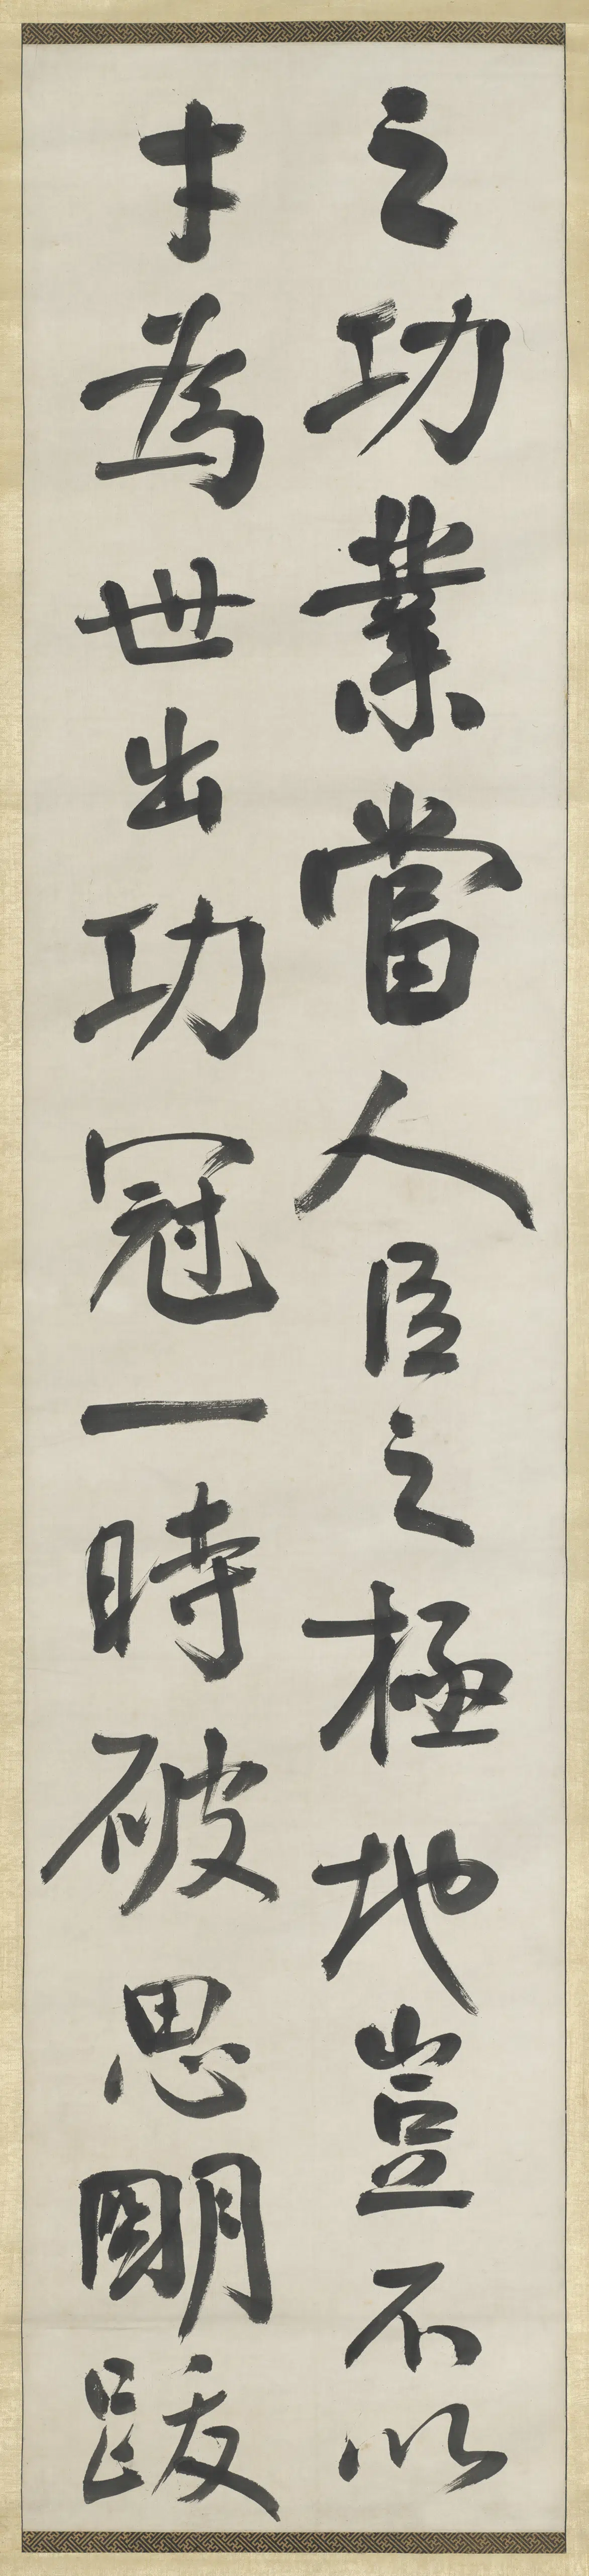 之功業當人臣之極地豈不以
才為世出功冠一時破思明跋